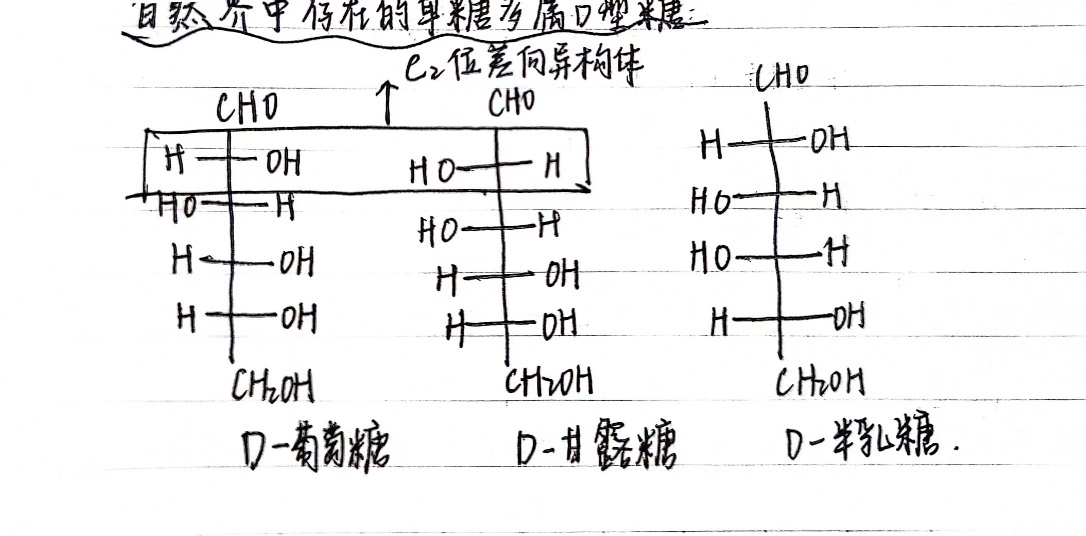 自然界中存在的单糖多属D型糖:
C₂位差向异构体
CHO CHO CHO
H OH HO H H OH
HO H HO H HO H
H OH H OH HO H
H OH H OH H OH
CH₂OH CH₂OH CH₂OH
D-葡萄糖 D-甘露糖 D-半乳糖.